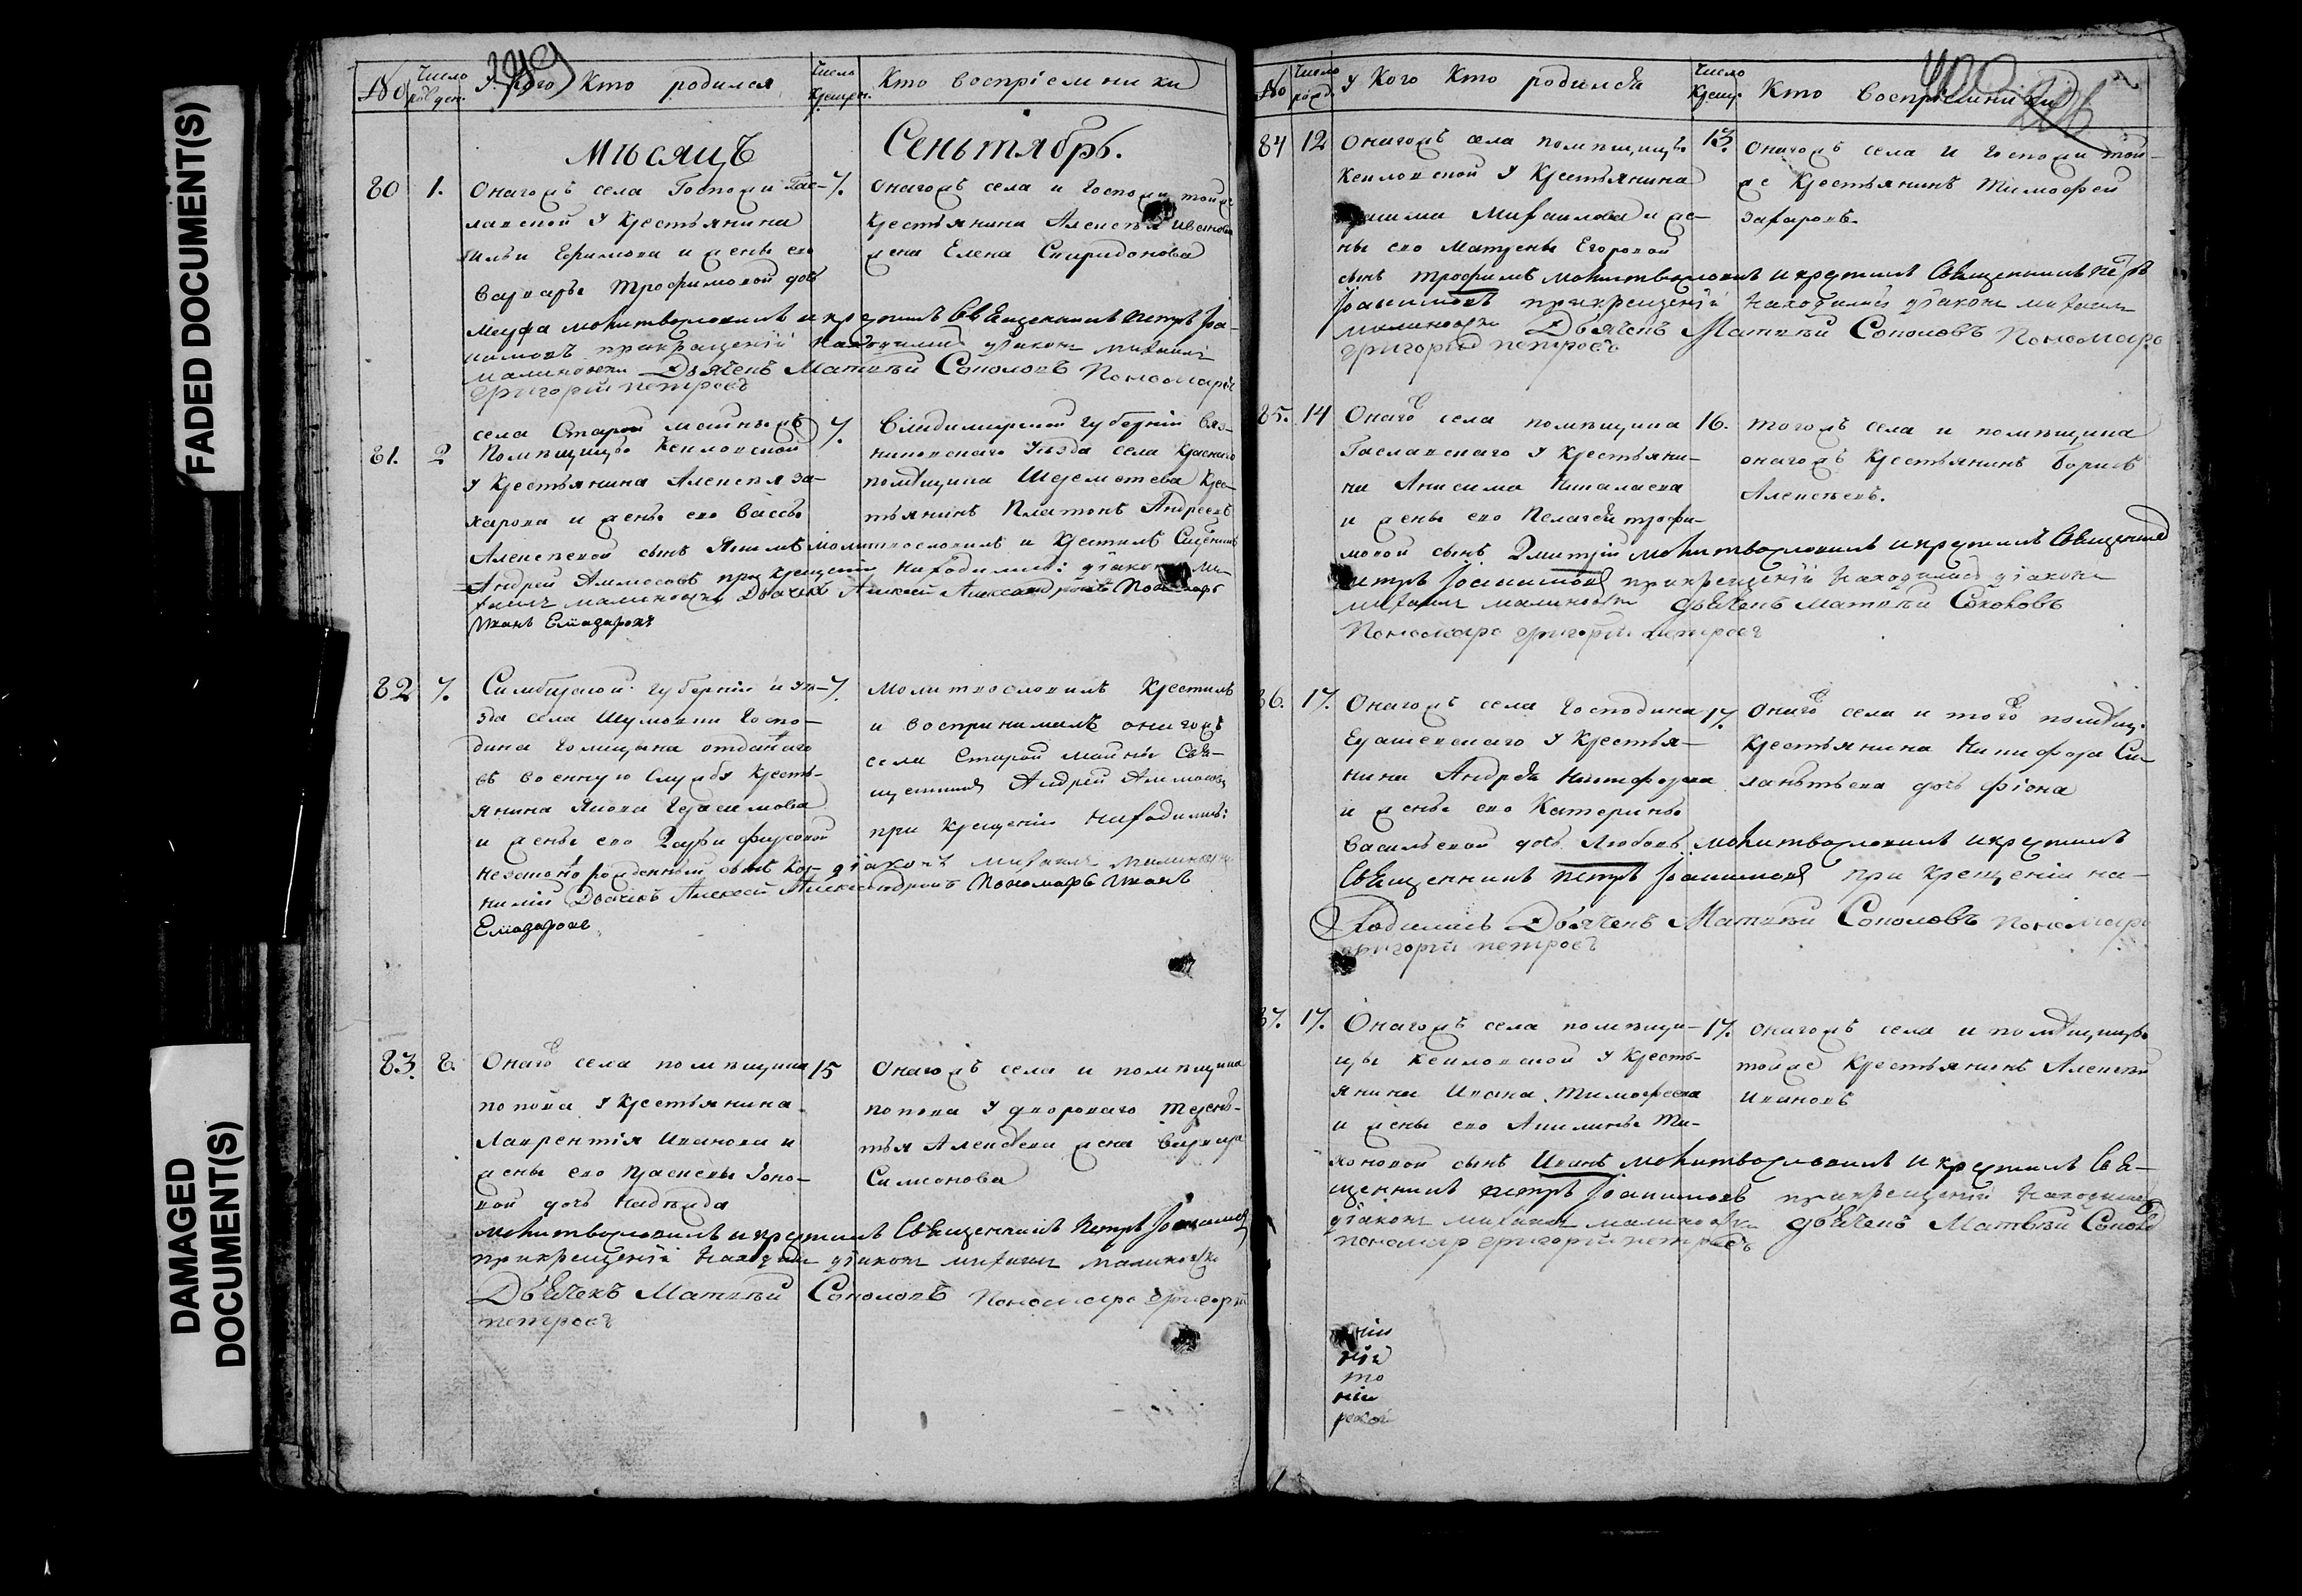 FADED DOCUMENT(S)
DAMAGED
DOCUMENT(S)
399
№
Число
рожден.
У кого Кто родился
Число
крещен.
Кто воспріемники
Мѣсяцъ Сеньтябрь.
80 1. Онагожъ села Госпожи Гас-
лавской у крестьянина
Ильи Ефимова и жены его
Варвары Трофимовой дочь
7. Онагожъ села и госпожи тойже
крестьянина Алексѣя Иванова
жена Елена Спиридонова
молитвословилъ и крестилъ Священникъ Петръ
при крещеніи находились діаконъ Михаилъ
Малиновски Дьячекъ Матвѣй Соколовъ Пономарь
Григорій Петровъ
81. 2 села Старой Майны
Помѣщицы
у крестьянина Алексѣя За-
харова и жены его Вассы
Алексѣевой сынъ Якимъ молитвословилъ и крестилъ Священникъ
7. Владимирской губерніи Вяз-
никовскаго уѣзда села Краснаго
помѣщика Шереметева крес-
тьянинъ Платонъ Андреевъ
Андрей Аммосовъ при крещеніи находились: діаконъ Ми-
хаилъ Малиновски Дьячекъ Алексѣй Александровъ Пономарь
Иванъ Елиазаровъ
82 7. Симбирской губерніи и уѣ-
зда села Шумовки Госпо-
дина Голицына отданнаго
въ военную службу кресть-
янина Якова Герасимова
и жены его Дарьи Фирсовой
незаконорожденный сынъ Кор-
нилій
7. молитвословилъ крестилъ
и воспринималъ онагожъ
села Старой Майны Свя-
щенникъ Андрей Аммосовъ
при крещеніи находились:
діаконъ Михаилъ Малиновски
Дьячекъ Алексѣй Александровъ Пономарь Иванъ
Елиазаровъ
83. 8. Онаго села помѣщика
попова у крестьянина
Лаврентія Иванова и
жены его Прасковьи Іоно-
вой дочь Надежда
15 Онагожъ села и помѣщика
попова у двороваго Терень-
тья Алексѣева жена Варвара
Симеонова
молитвословилъ и крестилъ Священникъ Петръ
при крещеніи находились діаконъ Михаилъ Малиновски
Дьячекъ Матвѣй Соколовъ Пономарь Григорій
Петровъ
400
№
Число
рожд.
У Кого Кто родился
Число
Крещ.
Кто Воспріемники
84 12 Онагожъ села помѣщицы
у крестьянина
Михаилова и же-
ны его Матрены Егоровой
13. Онагожъ села и Госпожи той-
же крестьянинъ Тимофей
Захаровъ.
сынъ Трофимъ молитвословилъ и крестилъ Священникъ Петръ
при крещеніи находились діаконъ Михаилъ
Малиновски Дьячекъ Матвѣй Соколовъ Пономарь
Григорій Петровъ
85. 14 Онаго села помѣщика
Гаславскаго у крестьяни-
на Анисима Николаева
и жены его Пелагеи Трофи-
мовой сынъ Дмитрій молитвословилъ и крестилъ Священникъ
16. тогожъ села и помѣщика
онагожъ крестьянинъ Борисъ
Алексѣевъ.
Петръ при крещеніи находились діаконъ
Михаилъ Малиновски Дьячекъ Матвѣй Соколовъ
Пономарь Григорій Петровъ
86. 17. Онагожъ села Господина
у крестья-
нина Андрея Никифорова
и жены его Катерины
Васильевой дочь Любовь молитвословилъ и крестилъ
17. Онаго села и того помѣщ.
крестьянина Никифора Си-
ланьтьева дочь Фіона
Священникъ Петръ при крещеніи на-
ходились Дьячекъ Матвѣй Соколовъ Пономарь
Григорій Петровъ
87. 17. Онагожъ села помѣщи-
цы у кресть-
янина Ивана Тимофеева
и жены его Акилины Ти-
хоновой сынъ Иванъ молитвословилъ и крестилъ Свя-
17. онагожъ села и помѣщицы
тойже крестьянинъ Алексѣй
Ивановъ
щенникъ Петръ при крещеніи находились
діаконъ Михаилъ Малиновски Дьячекъ Матвѣй Соколовъ
Пономарь Григорій Петровъ
нія
то
ніи